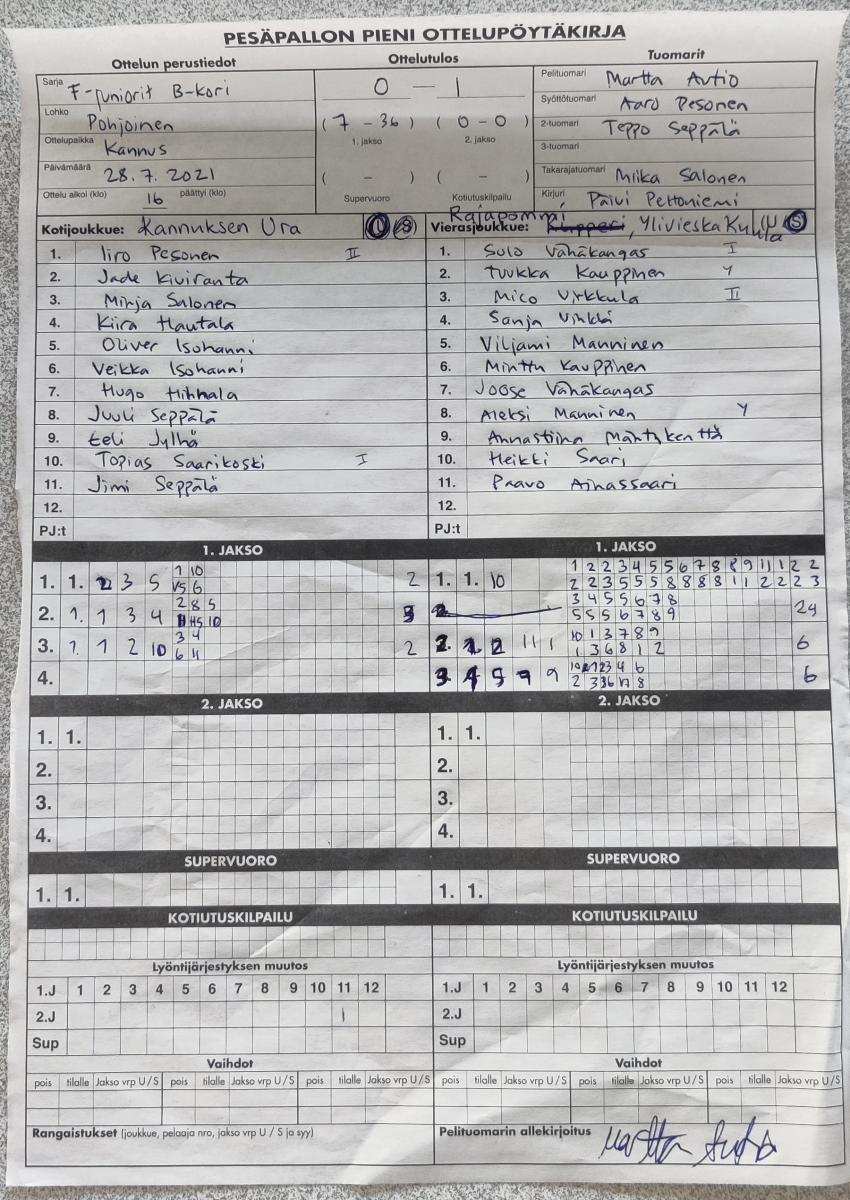 PESÄPALLON PIENI OTTELUPÖYTÄKIRJA
Ottelun perustiedot
Ottelutulos
Tuomarit
Sarja F-juniorit B-kori
Lohko Pohjoinen
Ottelupaikka Kannus
Päivämäärä 28.7.2021
Ottelu alkoi (klo) 16 päättyi (klo)
0 — 1
(7 - 36) (0 - 0)
1. jakso 2. jakso
( - ) ( - )
Supervuoro Kotiutuskilpailu
Pelituomari Martta Autio
Syöttötuomari Aaro Pesonen
2-tuomari Teppo Seppälä
3-tuomari
Takarajatuomari Miika Salonen
Kirjuri Päivi Peltoniemi
Kotijoukkue: Kannuksen Ura U/S
1. Iiro Pesonen II
2. Jade Kiviranta
3. Minja Salonen
4. Kiira Hautala
5. Oliver Isohanni
6. Veikka Isohanni
7. Hugo Hihnala
8. Juuli Seppälä
9. Eeli Jylhä
10. Topias Saarikoski I
11. Jimi Seppälä
12.
PJ:t
Rajapommi
Vierasjoukkue: , Ylivieska Kuula U/S
1. Sulo Vähäkangas I
2. Tuukka Kauppinen Y
3. Mico Virkkula II
4. Sanja
5. Viljami Manninen
6. Minttu Kauppinen
7. Joose Vähäkangas
8. Aleksi Manninen Y
9. Annastiina Mäntykenttä
10. Heikki Saari
11. Paavo Ainassaari
12.
PJ:t
1. JAKSO
1. 1. 2 3 5 2
2. 1. 1 3 4 3
3. 1. 1 2 10 2
4.
1. JAKSO
1. 1. 10
24
6
6
2. JAKSO
1. 1.
2.
3.
4.
2. JAKSO
1. 1.
2.
3.
4.
SUPERVUORO
1. 1.
SUPERVUORO
1. 1.
KOTIUTUSKILPAILU
KOTIUTUSKILPAILU
Lyöntijärjestyksen muutos
1.J 1 2 3 4 5 6 7 8 9 10 11 12
2.J I
Sup
Lyöntijärjestyksen muutos
1.J 1 2 3 4 5 6 7 8 9 10 11 12
2.J
Sup
Vaihdot
pois tilalle Jakso vrp U/S pois tilalle Jakso vrp U/S pois tilalle Jakso vrp U/S
Vaihdot
pois tilalle Jakso vrp U/S pois tilalle Jakso vrp U/S pois tilalle Jakso vrp U/S
Rangaistukset (joukkue, pelaaja nro, jakso vrp U / S ja syy)
Pelituomarin allekirjoitus Martta Autio